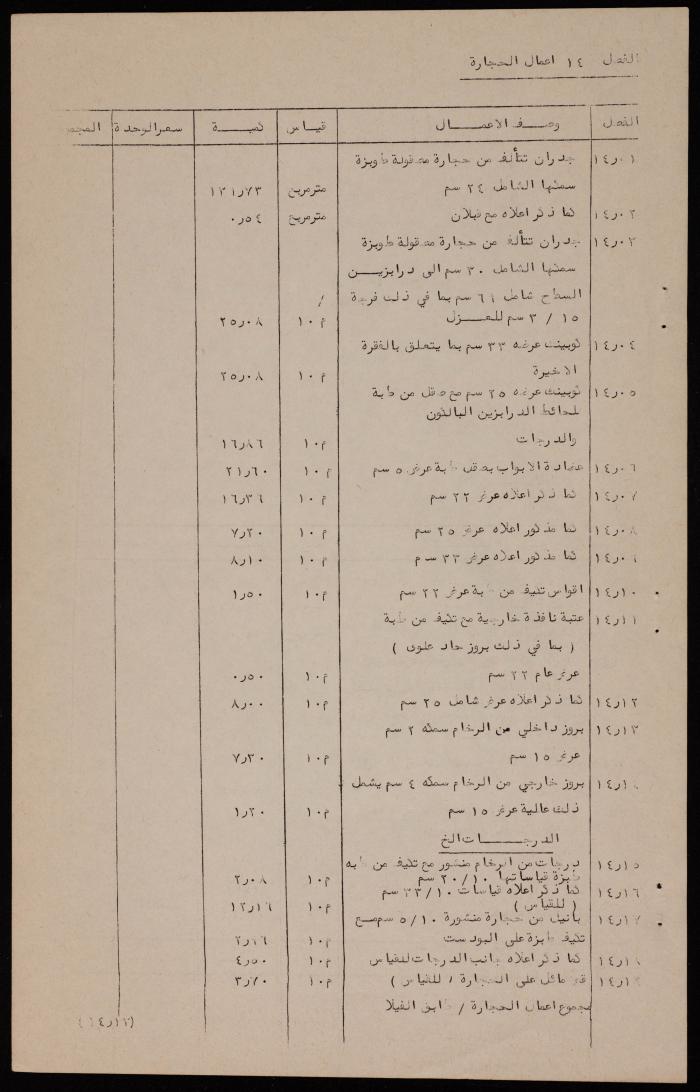 الفصل ١٤ اعمال الحجارة
الفصل وصف الاعمال قياس كمية سعر الوحدة المجم
١٤ر٠١ جدران تتألف من حجارة مصقولة طوبزة
سمكها الشامل ٢٤ سم مترمربع ١٣١ر٧٣
١٤ر٠٢ كما ذكر اعلاه مع قبلان مترمربع ٠ر٥٤
١٤ر٠٣ جدران تتألف من حجارة مصقولة طوبزة
سمكها الشامل ٣٠ سم الى درابزين
السطح شامل ٦١ سم بما في ذلك فرجة
١٥ / ٣ سم للعزل م٠١ ٢٥ر٠٨
١٤ر٠٤ كوبينك عرضه ٣٣ سم بما يتعلق بالفقرة
الاخيرة م٠١ ٢٥ر٠٨
١٤ر٠٥ كوبينك عرضه ٢٥ سم مع صقل من طبة
لحائط الدرابزين البالكون
والدرجات م٠١ ١٦ر٨٦
١٤ر٠٦ عضادة الابواب بصقل طبة عرض ٥ سم م٠١ ٢١ر٦٠
١٤ر٠٧ كما ذكر اعلاه عرض ٢٢ سم م٠١ ١٦ر٣٦
١٤ر٠٨ كما مذكور اعلاه عرض ٢٥ سم م٠١ ٧ر٢٠
١٤ر٠٩ كما مذكور اعلاه عرض ٣٣ سم م٠١ ٨ر١٠
١٤ر١٠ اقواس تكيف من طبة عرض ٢٢ سم م٠١ ١ر٥٠
١٤ر١١ عتبة نافذة خارجية مع تكيف من طبة
( بما في ذلك بروز حاد علوى )
عرض عام ٢٢ سم م٠١ ٠ر٥٠
١٤ر١٢ كما ذكر اعلاه عرض شامل ٢٥ سم م٠١ ٨ر٠٠
١٤ر١٣ بروز داخلي من الرخام سمكه ٢ سم
عرض ١٥ سم م٠١ ٧ر٣٠
١٤ر١ بروز خارجي من الرخام سمكه ٤ سم يشمل
ذلك عالية عرض ١٥ سم م٠١ ١ر٢٠
الدرجات الخ
١٤ر١٥ درجات من الرخام منشور مع تكيف من طبه
طبزة قياساتها ٢٠/١٠ سم م٠١ ٢ر٠٨
١٤ر١٦ كما ذكر اعلاه قياسات ٣٣/١٠ سم
( للقياس ) م٠١ ١٢ر١٦
١٤ر١٧ بانيل من حجارة منشورة ٥/١٠ سم مع
تكيف طبزة على البودست م٠١ ٢ر١٦
١٤ر١٨ كما ذكر اعلاه جانب الدرجات للقياس م٠١ ٤ر٥٠
١٤ر١٩ قص مائل على الحجارة ( للقياس ) م٠١ ٣ر٧٠
مجموع اعمال الحجارة / طابق الفيلا